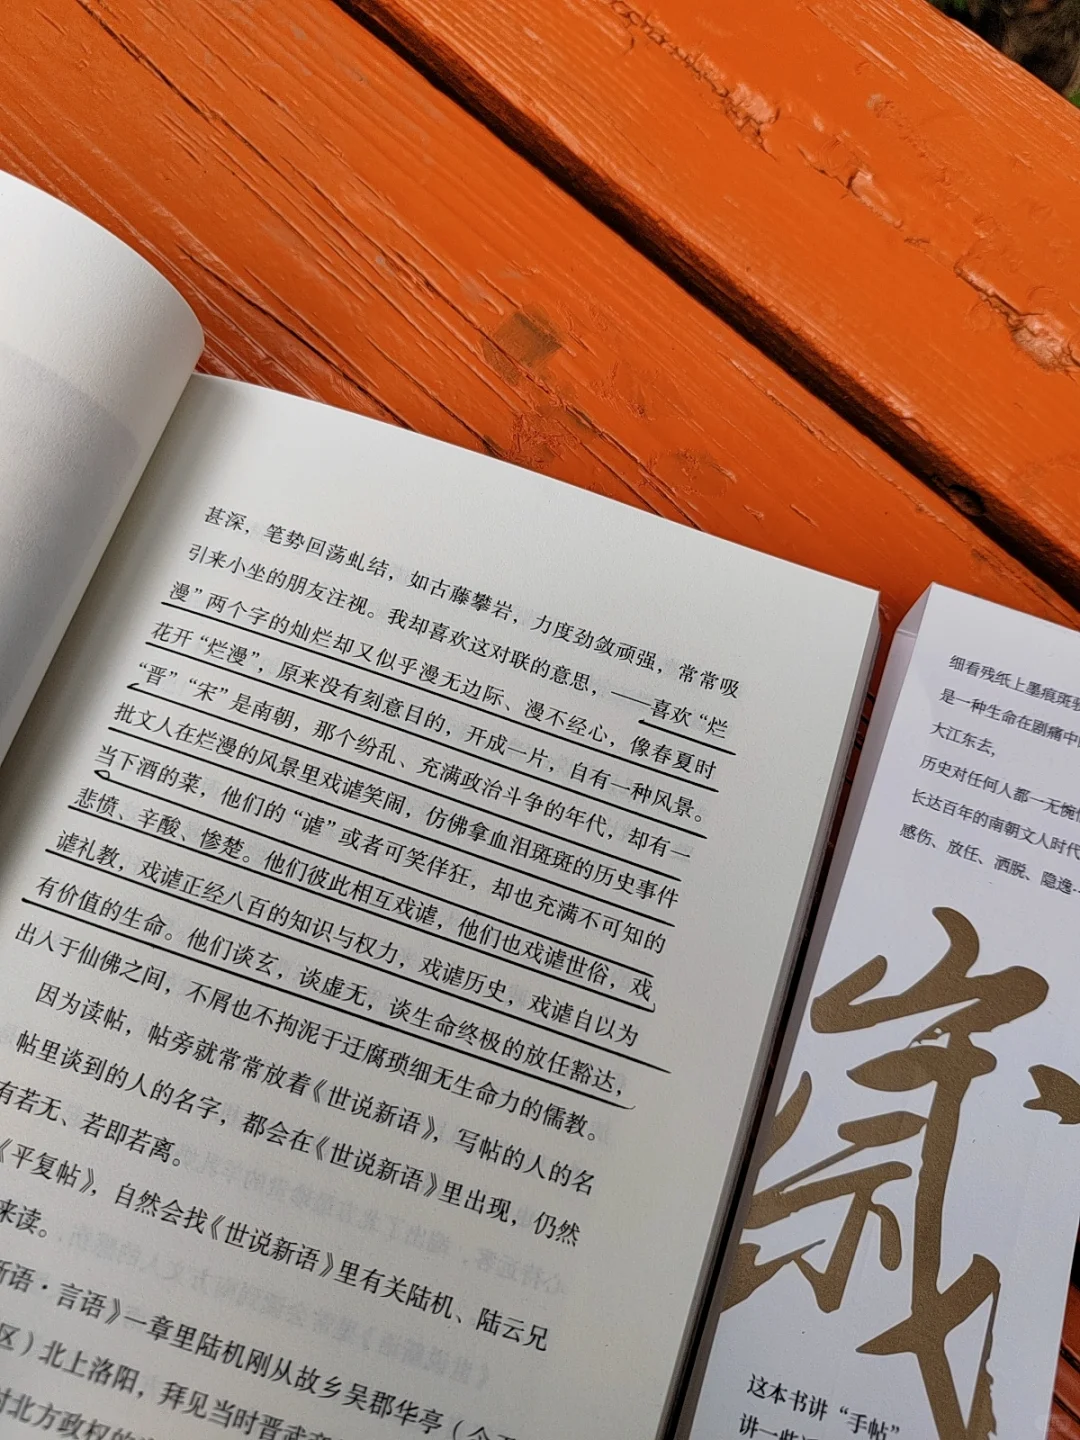 甚深，笔势回荡虬结，如古藤攀岩，力度劲敛顽强，常常吸
引来小坐的朋友注视。我却喜欢这对联的意思，——喜欢“烂
漫”两个字的灿烂却又似乎漫无边际、漫不经心，像春夏时
花开“烂漫”，原来没有刻意目的，开成一片，自有一种风景。
“晋”“宋”是南朝，那个纷乱、充满政治斗争的年代，却有一
批文人在烂漫的风景里戏谑笑闹，仿佛拿血泪斑斑的历史事件
当下酒的菜，他们的“谑”或者可笑佯狂，却也充满不可知的
悲愤、辛酸、惨楚。他们彼此相互戏谑，他们也戏谑世俗，戏
谑礼教，戏谑正经八百的知识与权力，戏谑历史，戏谑自以为
有价值的生命。他们谈玄，谈虚无，谈生命终极的放任豁达，
出入于仙佛之间，不屑也不拘泥于迂腐琐细无生命力的儒教。
因为读帖，帖旁就常常放着《世说新语》，写帖的人的名
帖里谈到的人的名字，都会在《世说新语》里出现，仍然
有若无、若即若离。
《平复帖》，自然会找《世说新语》里有关陆机、陆云兄
来读。
新语·言语》一章里陆机刚从故乡吴郡华亭（今
区）北上洛阳，拜见当时晋武
对北方政权的
细看残纸上墨痕斑
是一种生命在剧痛中
大江东去，
历史对任何人都一无惋
长达百年的南朝文人时代
感伤、放任、洒脱、隐逸
这本书讲“手帖”
讲一些